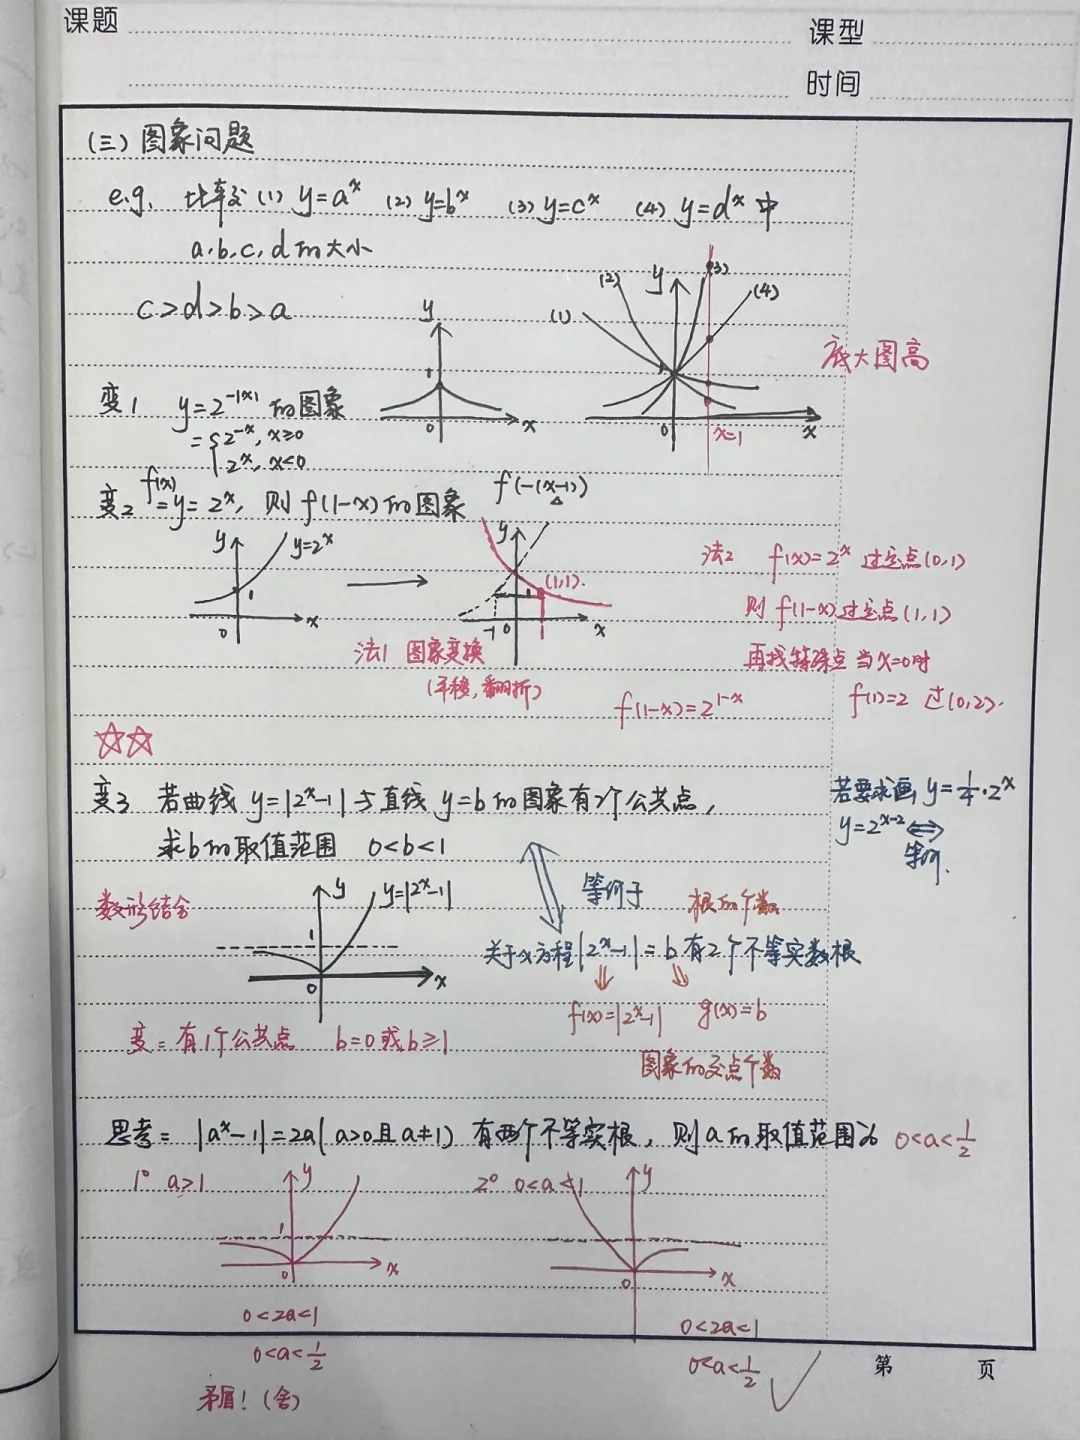 课题
课型
时间
(三) 图象问题
e.g. 比较 (1) y=aˣ (2) y=bˣ (3) y=cˣ (4) y=dˣ 中
a.b.c.d的大小
c>d>b>a
y
1
0
x
(1)
(2)
y
(3)
(4)
0
x=1
x
底大图高
变1 y=2^{-|x|} 的图象
={2^{-x}, x≥0
2ˣ, x<0
变2 f(x)=y=2ˣ, 则f(1-x)的图象
f(-(x-1))
y
y=2ˣ
1
0
x
y
(1,1).
1
-1
0
1
x
法1 图象变换
(平移,翻折)
法2 f(x)=2ˣ过定点(0,1)
则f(1-x)过定点(1,1)
再找特殊点 当x=0时
f(1)=2 过(0,2).
f(1-x)=2^{1-x}
☆☆
变3 若曲线y=|2ˣ-1|与直线y=b的图象有2个公共点,
求b的取值范围 0<b<1
若要求画y=1/4·2ˣ
y=2^{x-2} ⇔
等价.
数形结合
y
y=|2ˣ-1|
1
0
x
等价于
根的个数
关于x方程|2ˣ-1|=b有2个不等实数根
f(x)=|2ˣ-1| g(x)=b
图象的交点个数
变: 有1个公共点 b=0或b≥1
思考: |aˣ-1|=2a(a>0且a≠1)有两个不等实根, 则a的取值范围为 0<a<1/2
1° a>1
y
1
0
x
0<2a<1
0<a<1/2
矛盾!(舍)
2° 0<a<1
y
0
x
0<2a<1
0<a<1/2 ✓
第 页